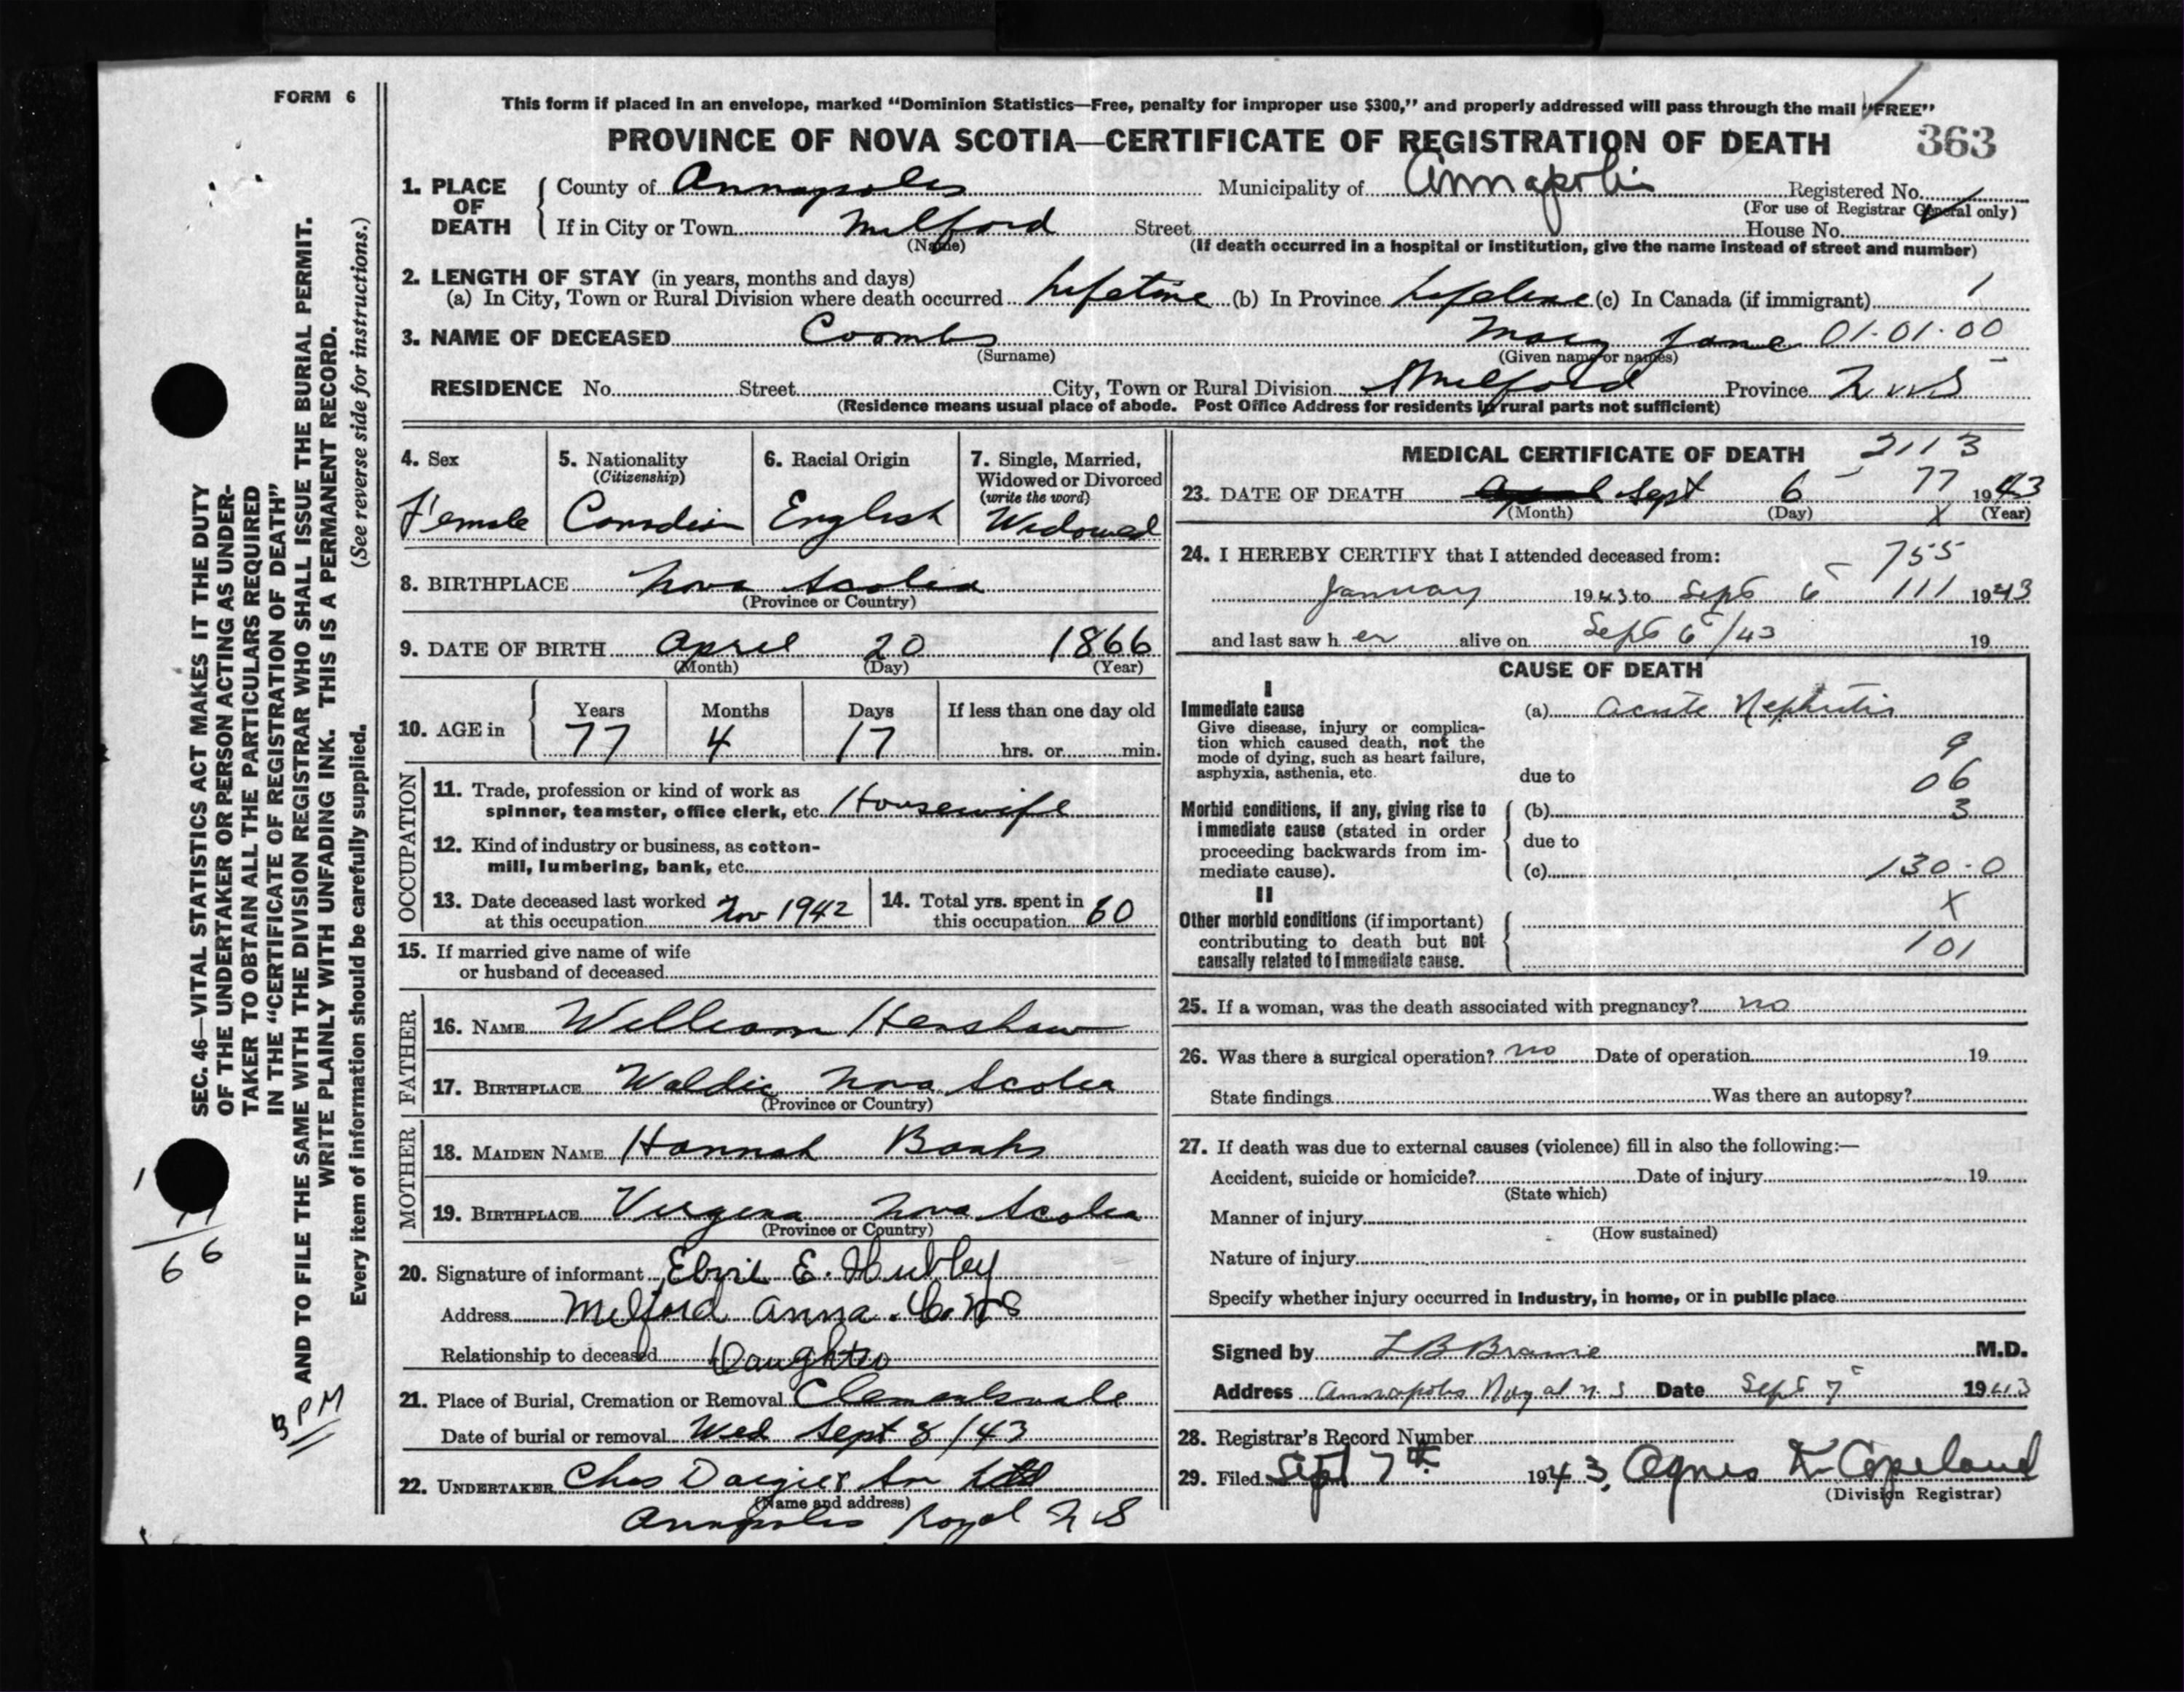 FORM 6
This form if placed in an envelope, marked "Dominion Statistics—Free, penalty for improper use $300," and properly addressed will pass through the mail "FREE"
PROVINCE OF NOVA SCOTIA—CERTIFICATE OF REGISTRATION OF DEATH 363
1. PLACE OF DEATH County of Annapolis Municipality of Annapolis Registered No.
(For use of Registrar General only)
If in City or Town Milford Street House No.
(Name) (If death occurred in a hospital or institution, give the name instead of street and number)
2. LENGTH OF STAY (in years, months and days)
(a) In City, Town or Rural Division where death occurred Lifetime (b) In Province Lifetime (c) In Canada (if immigrant)
3. NAME OF DECEASED Coombs Mary Jane 01·01·00
(Surname) (Given name or names)
RESIDENCE No. Street City, Town or Rural Division Milford Province
(Residence means usual place of abode. Post Office Address for residents in rural parts not sufficient)
4. Sex Female
5. Nationality (Citizenship) Canadian
6. Racial Origin English
7. Single, Married, Widowed or Divorced (write the word) Widowed
8. BIRTHPLACE Nova Scotia
(Province or Country)
9. DATE OF BIRTH April 20 1866
(Month) (Day) (Year)
10. AGE in Years 77 Months 4 Days 17 If less than one day old hrs. or min.
OCCUPATION
11. Trade, profession or kind of work as
spinner, teamster, office clerk, etc. Housewife
12. Kind of industry or business, as cotton-
mill, lumbering, bank, etc.
13. Date deceased last worked at this occupation Nov 1942
14. Total yrs. spent in this occupation 60
15. If married give name of wife
or husband of deceased
FATHER
16. NAME William Henshaw
17. BIRTHPLACE Waldic Nova Scotia
(Province or Country)
MOTHER
18. MAIDEN NAME Hannah Banks
19. BIRTHPLACE Virgina Nova Scotia
(Province or Country)
20. Signature of informant E. Hubley
Address Milford Anna. Co NS
Relationship to deceased Daughter
21. Place of Burial, Cremation or Removal Clementsvale
Date of burial or removal Wed Sept 8/43
22. UNDERTAKER Chas Dargie & Son Ltd
(Name and address)
Annapolis Royal N S
MEDICAL CERTIFICATE OF DEATH 2113
23. DATE OF DEATH Sept 6 77 1943
(Month) (Day) X (Year)
24. I HEREBY CERTIFY that I attended deceased from: 755
January 1943 to Sept 6 111 1943
and last saw her alive on Sept 6/43 19
CAUSE OF DEATH
I
Immediate cause (a) Acute Nephritis
Give disease, injury or complica-
tion which caused death, not the
mode of dying, such as heart failure,
asphyxia, asthenia, etc. 9
due to 06
Morbid conditions, if any, giving rise to (b) 3
immediate cause (stated in order due to
proceeding backwards from im-
mediate cause). (c) 130-0
II X
Other morbid conditions (if important)
contributing to death but not 101
causally related to immediate cause.
25. If a woman, was the death associated with pregnancy? no
26. Was there a surgical operation? no Date of operation 19
State findings Was there an autopsy?
27. If death was due to external causes (violence) fill in also the following:—
Accident, suicide or homicide? Date of injury 19
(State which)
Manner of injury
(How sustained)
Nature of injury
Specify whether injury occurred in industry, in home, or in public place
Signed by M.D.
Address Annapolis Royal N.S Date Sept 7 1943
28. Registrar's Record Number
29. Filed Sept 7th 1943, Agnes K. Copeland
(Division Registrar)
SEC. 46—VITAL STATISTICS ACT MAKES IT THE DUTY
OF THE UNDERTAKER OR PERSON ACTING AS UNDER-
TAKER TO OBTAIN ALL THE PARTICULARS REQUIRED
IN THE "CERTIFICATE OF REGISTRATION OF DEATH"
AND TO FILE THE SAME WITH THE DIVISION REGISTRAR WHO SHALL ISSUE THE BURIAL PERMIT.
WRITE PLAINLY WITH UNFADING INK. THIS IS A PERMANENT RECORD.
Every item of information should be carefully supplied. (See reverse side for instructions.)
66
3 PM